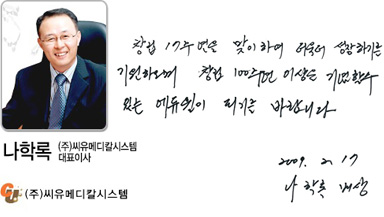 창립 17주년을 맞이하여 더욱더 성장하기를
기원하오며 창립 100주년 이상을 기념할수
있는 에듀윈이 되기를 바랍니다
나학록 (주)씨유메디칼시스템
대표이사
2009. 2. 17
나 학록
CU (주)씨유메디칼시스템